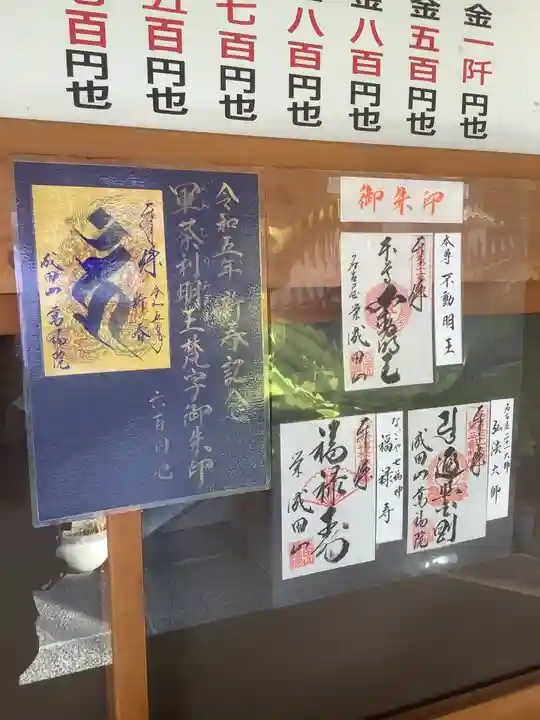 金一阡円也
金五百円也
金八百円也
八百円也
七百円也
五百円也
百円也
令和五年 新春記念
軍荼利明王梵字御朱印
六百円也
奉拝
令和五年
新春
成田山萬福院
御朱印
本尊 不動明王
奉拝
本尊 不動明王
名古屋 栄 成田山
なごや七福神
福禄寿
奉拝
福禄寿
栄 成田山
弘法大師
奉拝
南無遍照金剛
成田山萬福院